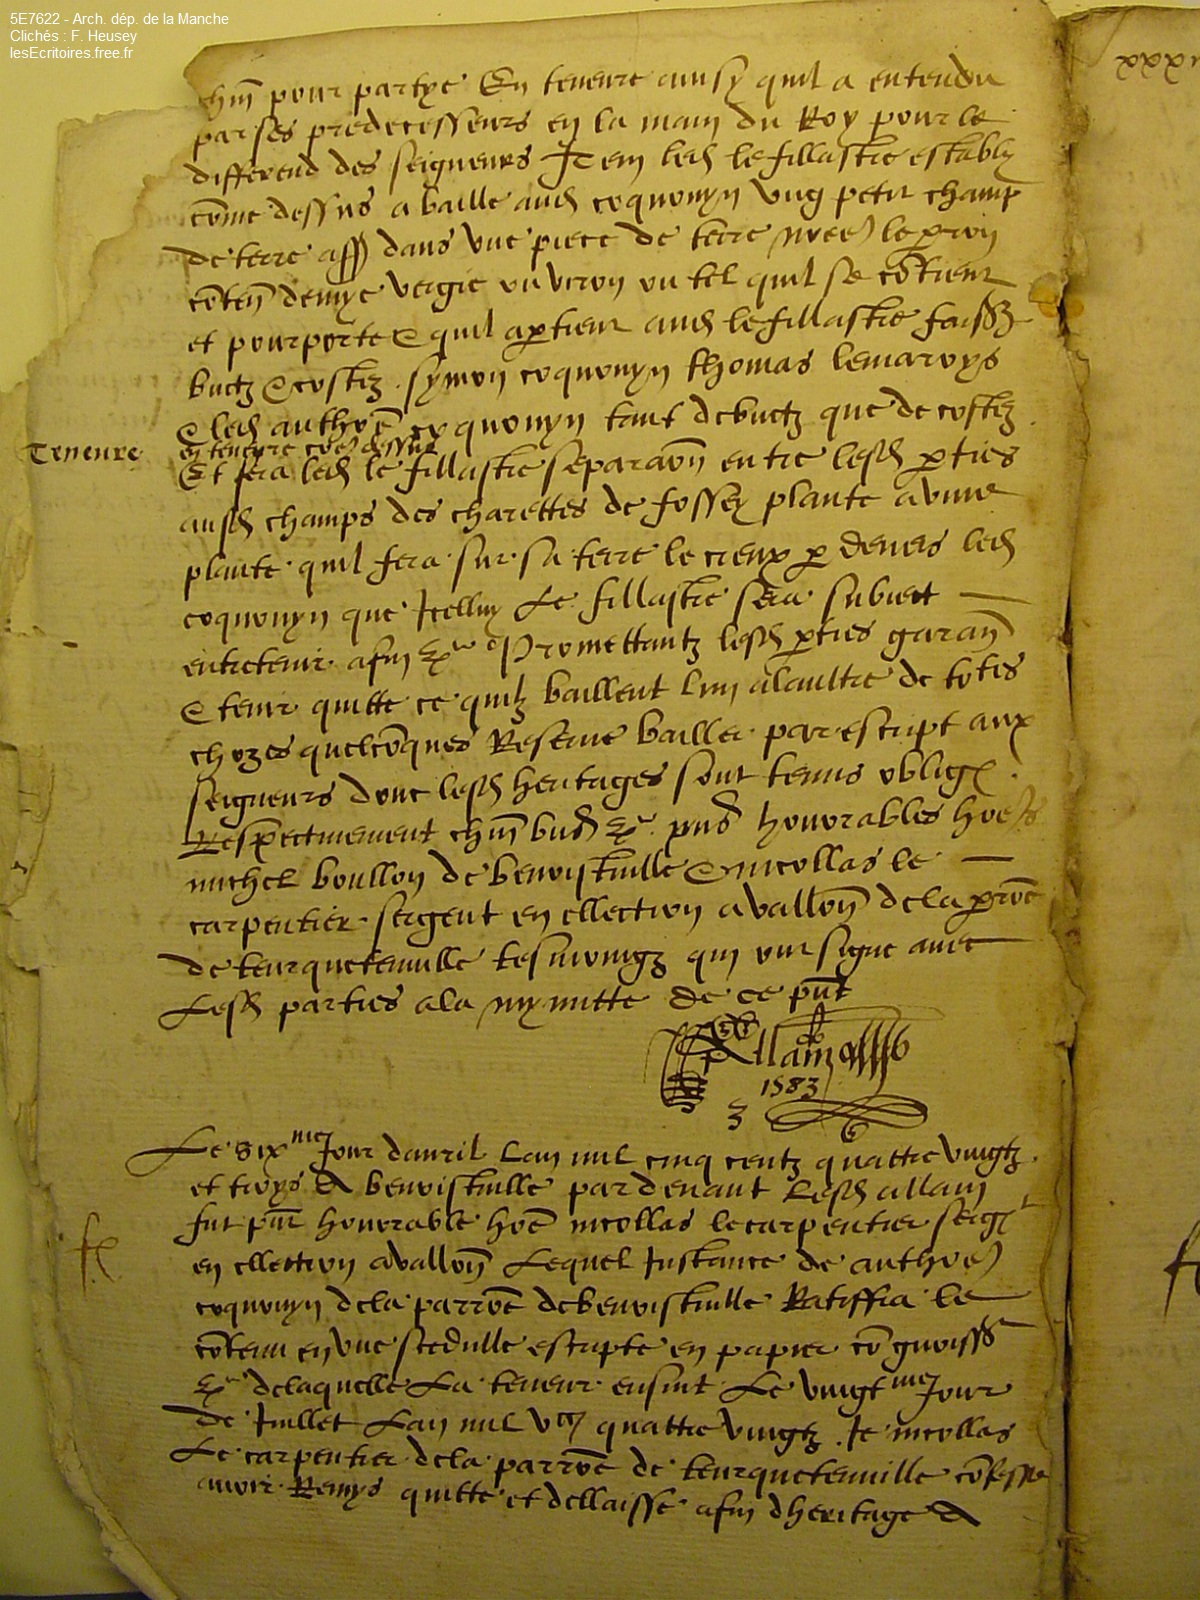 5E7622 - Arch. dép. de la Manche
Clichés : F. Heusey
lesEcritoires.free.fr
xxxx
chm pour partye En teneure ainsy quil a entendu
par ses predecesseurs en la main du Roy pour le
differend des seigneurs Item led le fillastre estably
come dessus a baille aud coquonyn ung petit champ
de terre ass dans une piece de terre le
conten demye vergie ou viron ou tel quil se contient
et pourporte & quil apartient aud le fillastre
buctz & costez . symon coquonyn thomas lemaroys
& led anthoe coquonyn tant de buctz que de costez
en teneure come dessus
Teneure
Et fera led le fillastre separaon entre lesd parties
ausd champs des charettes de fossey plante a une
plante quil fera sur sa terre le creux par devers led
coquonyn que Icelluy Le fillastre sera subiect
entretenir afin Promettantz lesd parties garan
& tenir quitte ce quilz baillent lun a laultre de totes
chozes quelconques Reserve bailler par escript aux
seigneurs donc lesd heritages sont tenus oblig
Respectivement chm bud pns honorables hoes
michel boullon de benoistville & nicollas le
carpentier sergent en ellection a vallon de la paroe
de teurquetenville tesmoingz qui ont signe avec
Lesd parties a la mynutte de ce pnt
Allain
1583
Le six me Jour davril Lan mil cinq centz quattre vingtz
et troys A benoistville par devant Lesd allain
fut pnt honorable hoe nicollas le carpentier serg
en ellection a vallon Lequel Instance de anthoe
coquonyn de la parroe de benoistville Ratiffia le
contenu en une scedulle escripte en papier congnoiss
de laquelle La teneur ensuit Le vingt me Jour
de Juillet Lan mil Vc quattre vingtz . Je nicollas
Le carpentier de la parroe de teurquetenville confesse
avoir Remys quitte et dellaisse afin dheritage A